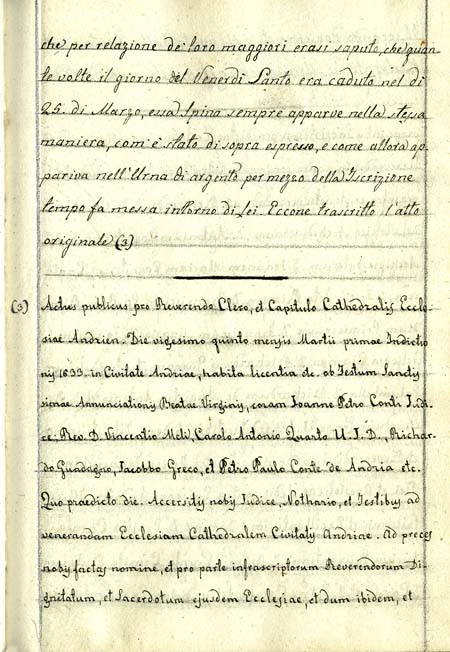 che per relazione de' loro maggiori erasi saputo, che quan-
te volte il giorno del Venerdì Santo era caduto nel dì
25. di Marzo, essa Spina sempre apparve nella stessa
maniera, com'è stato di sopra espresso, e come allora ap-
pariva nell'Urna di argento per mezzo della Iscrizione
tempo fa messa intorno di lei. Eccone trascritto l'atto
originale (3)
(3) Actus publicus pro Reverendo Clero, et Capitulo Cathedralis Eccle-
siae Andrien. Die vigesimo quinto mensis Martii primae Indictio
nis 1633. in Civitate Andriae, habita licentia etc. ob Festum Sanctis
simae Annunciationis Beatae Virginis, coram Joanne Petro Conti Judi-
ce. Rev. D. Vincentio Meli, Carolo Antonio Quarto U. J. D., Richar-
do Guadagno, Jacobbo Greco, et Petro Paulo Conte de Andria etc.
Quo praedicto die. Accersitis nobis Judice, Nothario, et Testibus ad
venerandam Ecclesiam Cathedralem Civitatis Andriae. Ad preces
nobis factas nomine, et pro parte infrascriptorum Reverendorum Di-
gnitatum, et Sacerdotum ejusdem Ecclesiae, et dum ibidem, et